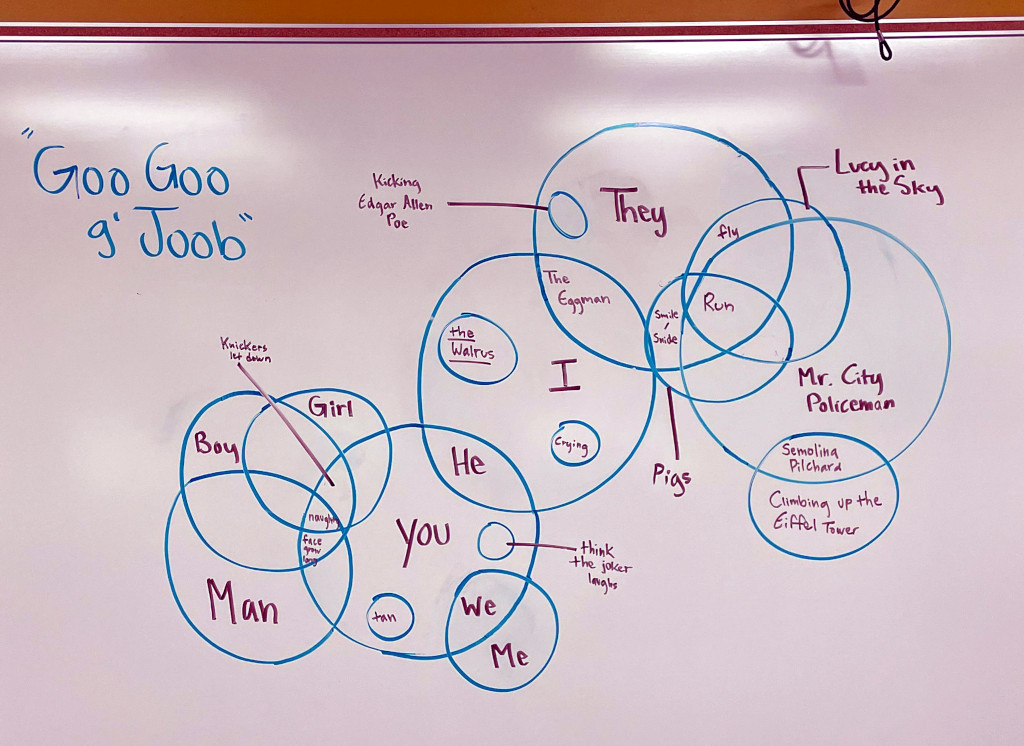 "Goo Goo
g' Joob"
Kicking
Edgar Allen
Poe
They
Lucy in
the Sky
fly
The
Eggman
Run
Smile
/
Snide
the
Walrus
I
Mr. City
Policeman
Knickers
let down
Girl
Boy
Crying
He
Pigs
Semolina
Pilchard
Climbing up the
Eiffel Tower
naughty
face
grow
long
You
think
the joker
laughs
Man
tan
We
Me